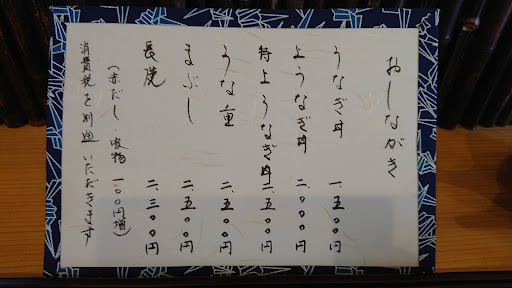 おしながき
うなぎ丼 一、五〇〇円
上うなぎ丼 二、〇〇〇円
特上うなぎ丼 二、五〇〇円
うな重 二、五〇〇円
まぶし 二、五〇〇円
長焼 二、三〇〇円
(赤だし・吸物 一〇〇円増)
消費税を別途いただきます